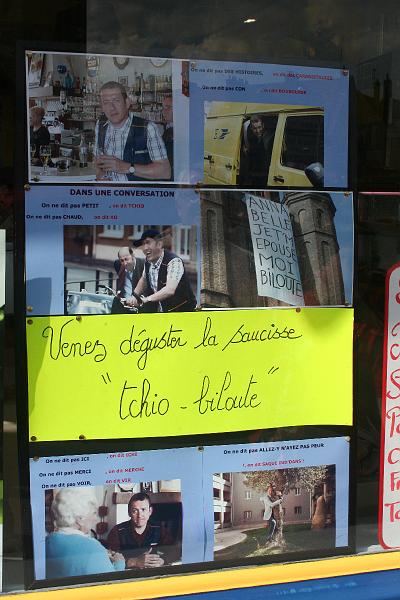 On ne dit pas DES HISTOIRES, on dit des CARABISTOUILLES
On ne dit pas CON, on dit BOUBOURSE
DANS UNE CONVERSATION
On ne dit pas PETIT, on dit TCHIO
On ne dit pas CHAUD, on dit KO
ANNA
BELLE
JET'M
EPOUSE
MOI
BILOUTE
Venez déguster la saucisse
"tchio - biloute"
On ne dit pas ICI, on dit ICHE
On ne dit pas MERCI, on dit MERCHE
On ne dit pas VOIR, on dit VIR
On ne dit pas ALLEZ-Y N'AYEZ PAS PEUR
!, on dit SAQUE EUD'DANS !